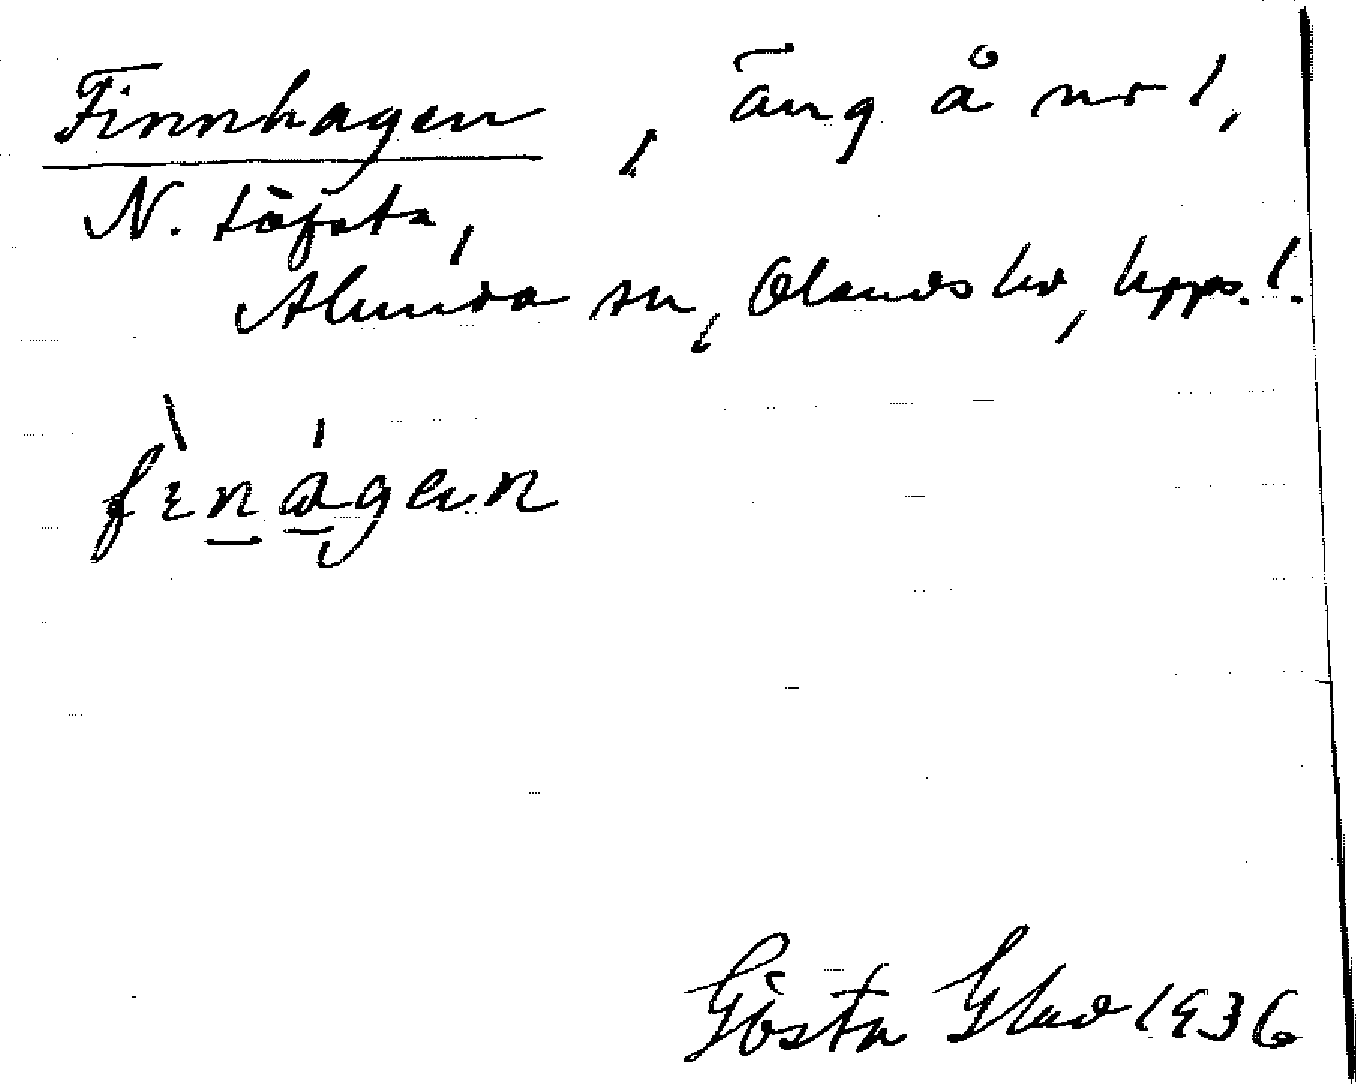 Finnhagen, äng å nr 1,
N. Löfsta,
Alunda sn, Olands hd, Uppl.
fìnágan
Gösta Glad 1936